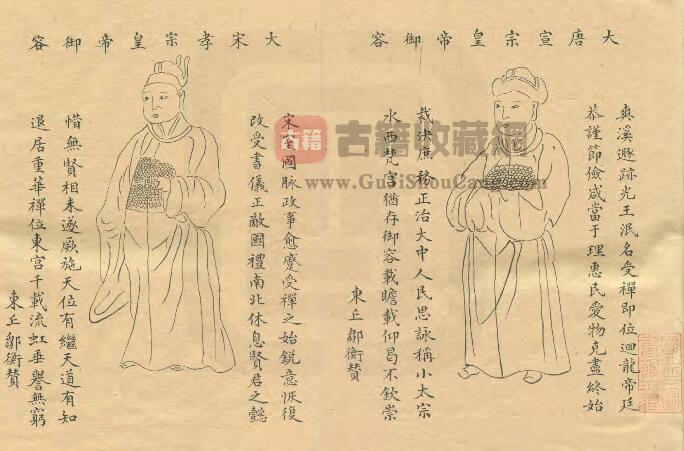 大唐宣宗皇帝御容
爽溪遯跡光王泯名受禪即位迴龍帝廷
恭謹節儉咸當于理惠民愛物克盡終始
裁決庶務正治大中人民思詠稱小太宗
水西梵宮猶存御容載瞻載仰曷不欽崇
東丘鄒衡贊
大宋孝宗皇帝御容
宋室國脉政事愈蹙受禪之始銳意恢復
改受書儀正敵國禮南北休息賢君之懿
惜無賢相未遂厥施天位有繼天道有知
退居重華禪位東宮千載流虹垂譽無窮
東丘鄒衡贊
古籍
古籍收藏网